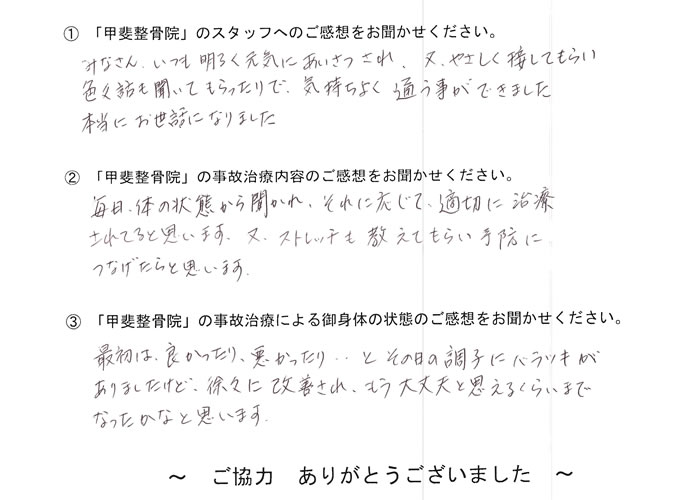 ① 「甲斐整骨院」のスタッフへのご感想をお聞かせください。
みなさん、いつも明るく元気にあいさつされ、又、やさしく接してもらい
色々話も聞いてもらったりで、気持ちよく通う事ができました
本当にお世話になりました
② 「甲斐整骨院」の事故治療内容のご感想をお聞かせください。
毎日、体の状態から聞かれ、それに応じて、適切に治療
されてると思います。又、ストレッチも教えてもらい予防に
つなげたらと思います。
③ 「甲斐整骨院」の事故治療による御身体の状態のご感想をお聞かせください。
最初は、良かったり、悪かったり‥とその日の調子にバラツキが
ありましたけど、徐々に改善され、もう大丈夫と思えるくらいまで
なったかなと思います。
～ ご協力 ありがとうございました ～